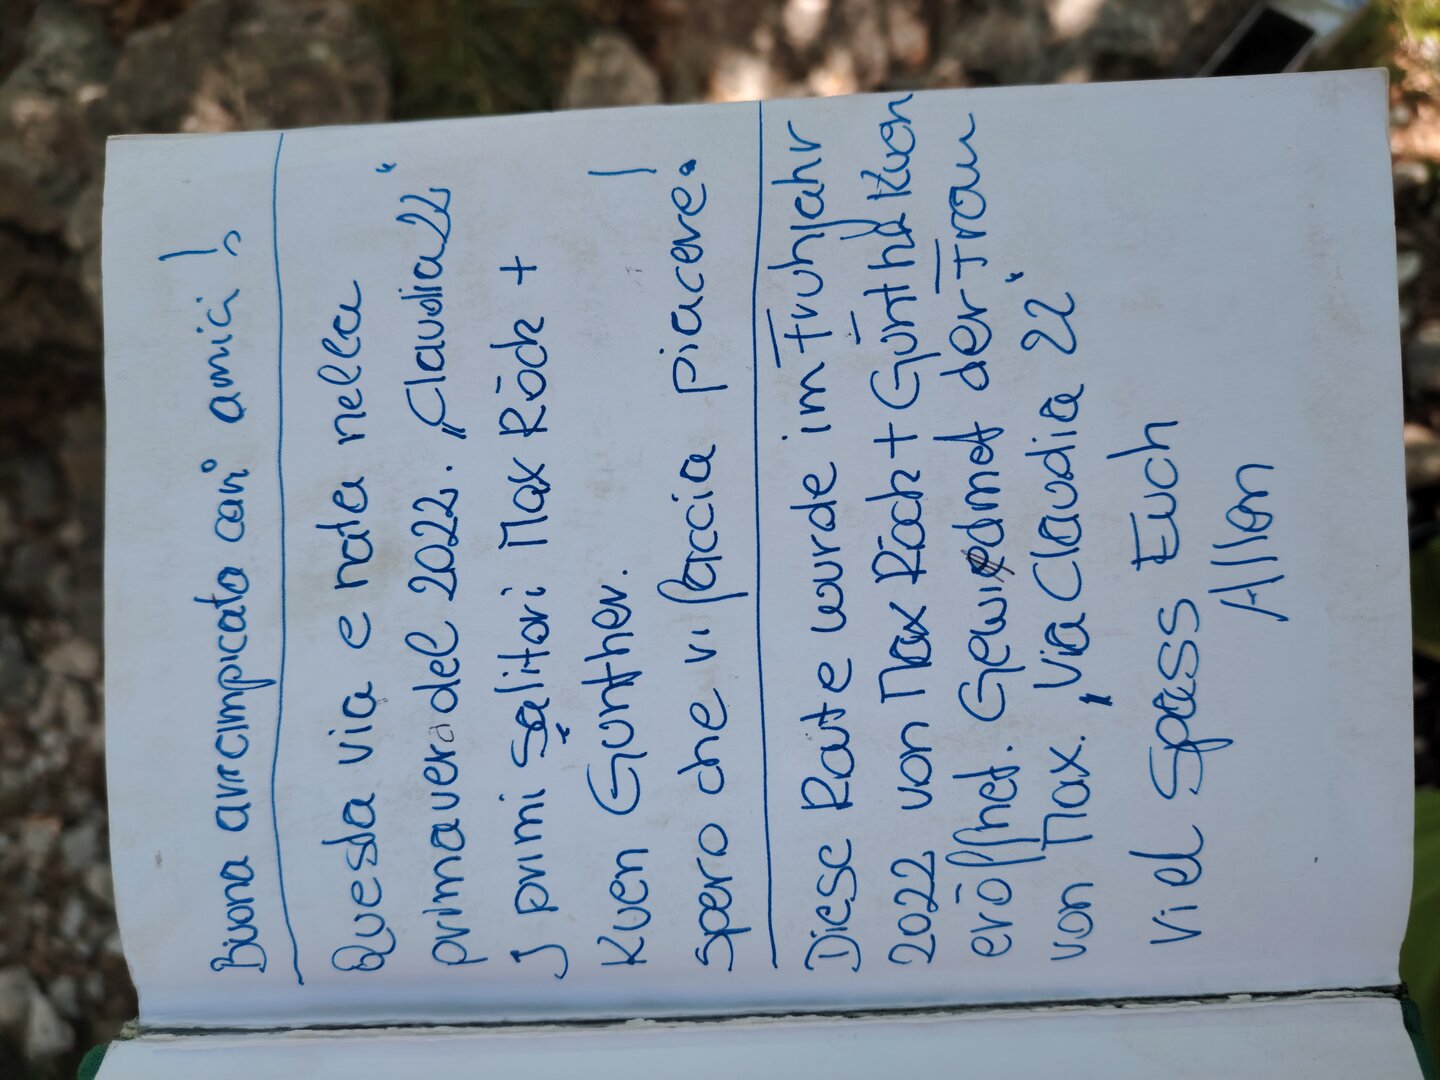 Buona arrcimpicata cari amici !
Questa via e nata nella
primavera del 2022. „Claudia22“
I primi Salitori Max Röck +
Kuen Günther.
Spero che vi faccia piacere!
Diese Route wurde im Frühjahr
2022 von Max Röck + Günther Kuen
eröffnet. Gewidmet der Frau
von Max. „Via Claudia 22“
Viel Spass Euch
Allen